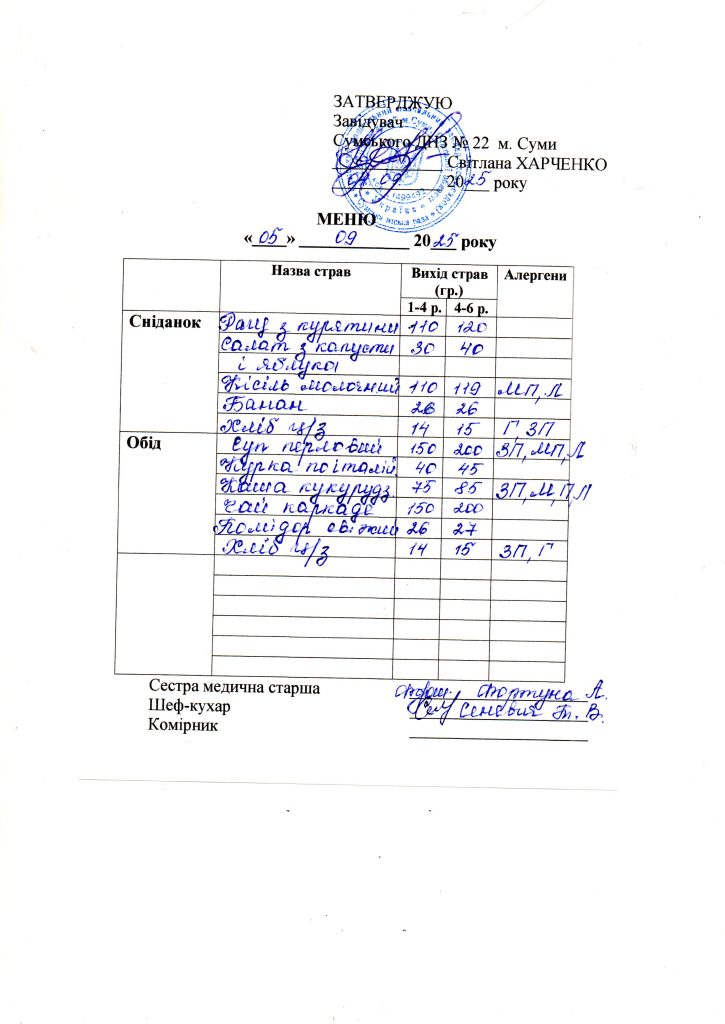 ЗАТВЕРДЖУЮ
Завідувач
Сумського ДНЗ № 22 м. Суми
Світлана ХАРЧЕНКО
04 09 2025 року
МЕНЮ
«05» 09 2025 року
Назва страв Вихід страв (гр.) Алергени
1-4 р. 4-6 р.
Сніданок Рагу з курятини 110 120
Салат з капусти 30 40
і яблука
Кісіль молочний 110 119 МП, Л
Банан 26 26
Хліб ц/з 14 15 Г, ЗП
Обід Суп перловий 150 200 ЗП, МП, Л
Курка по італій. 40 45
Каша кукурудз. 75 85 ЗП, М, П, Л
Чай каркаде 150 200
Помідор свіжий 26 27
Хліб ц/з 14 15 ЗП, Г
Сестра медична старша Фортуна А.
Шеф-кухар Сеневич Т. В.
Комірник